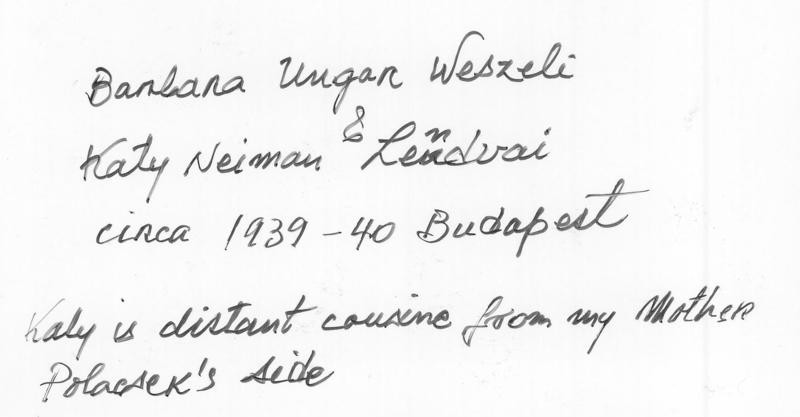 Barbara Ungar Weszeli
&
Katy Neiman Lendvai
circa 1939-40 Budapest
Katy is distant cousine from my Mother
Polacsek's side